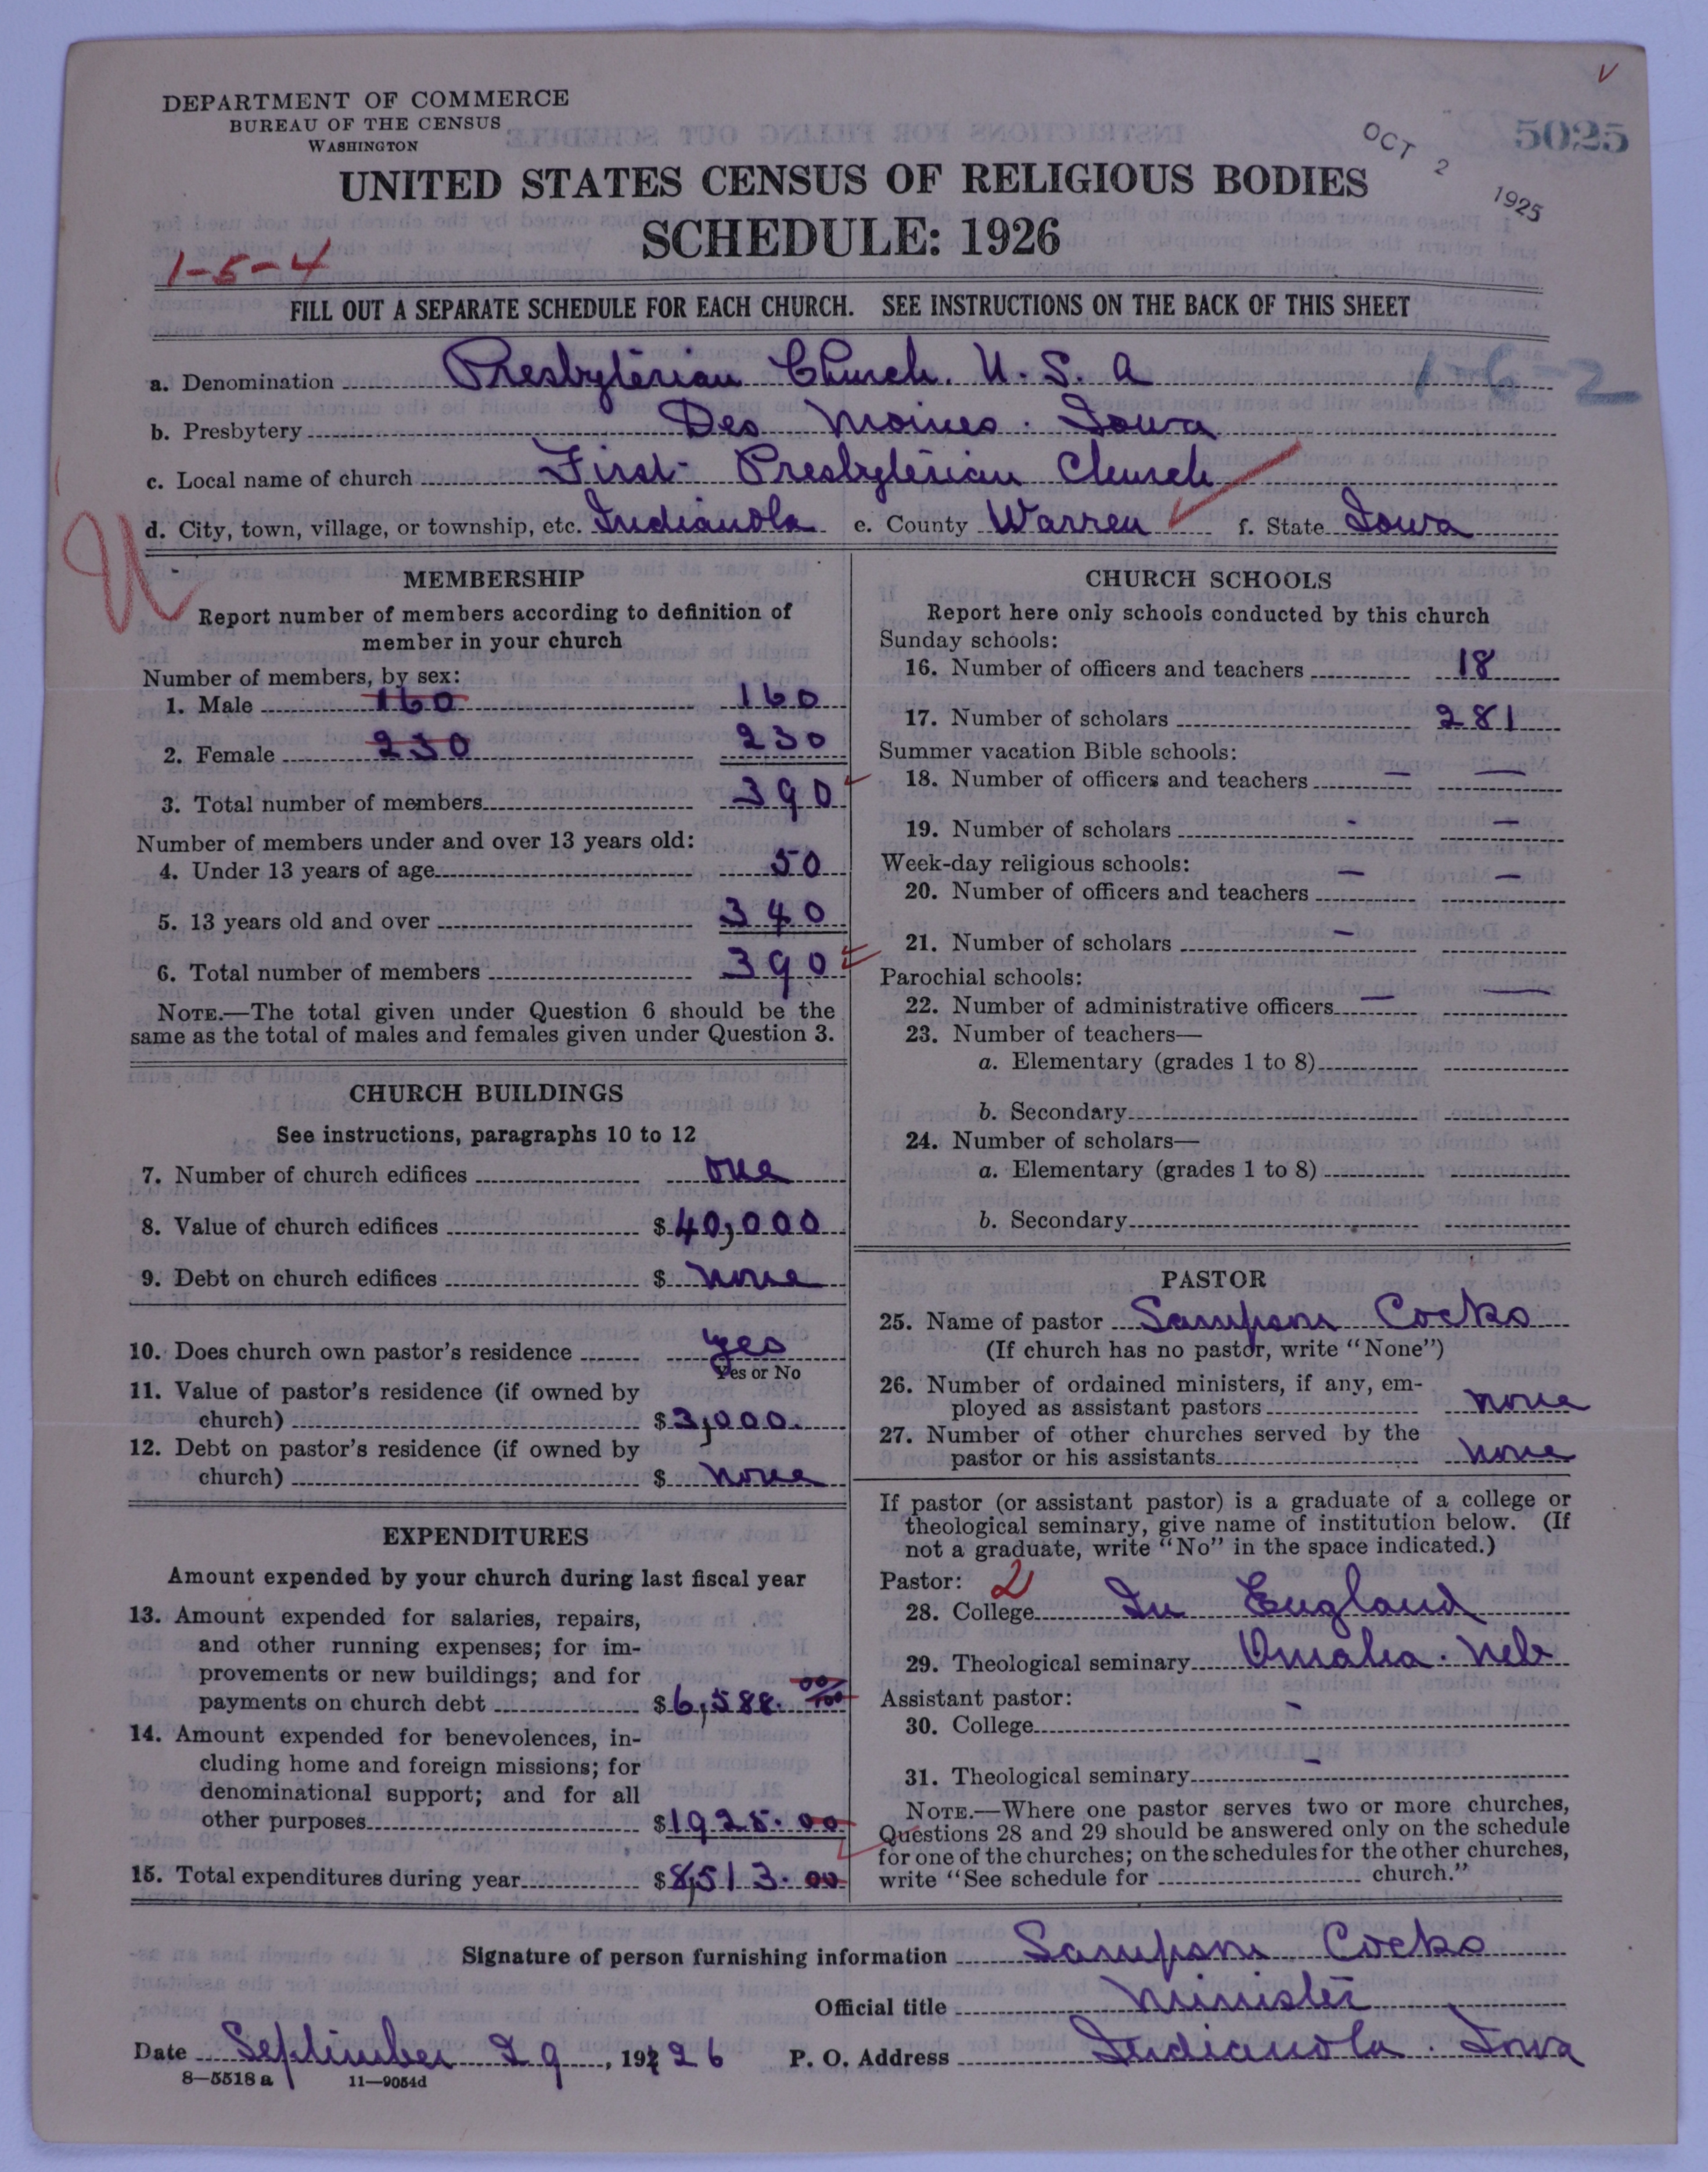 DEPARTMENT OF COMMERCE
BUREAU OF THE CENSUS
WASHINGTON
OCT 2 1925
5025
UNITED STATES CENSUS OF RELIGIOUS BODIES
SCHEDULE: 1926
1-5-4
FILL OUT A SEPARATE SCHEDULE FOR EACH CHURCH. SEE INSTRUCTIONS ON THE BACK OF THIS SHEET
a. Denomination Presbyterian Church. U.S.A
1-6-2
b. Presbytery Des Moines. Iowa
c. Local name of church First Presbyterian Church
d. City, town, village, or township, etc. Indianola e. County Warren f. State Iowa
MEMBERSHIP
Report number of members according to definition of
member in your church
Number of members, by sex:
1. Male 160 160
2. Female 230 230
3. Total number of members 390
Number of members under and over 13 years old:
4. Under 13 years of age 50
5. 13 years old and over 340
6. Total number of members 390
NOTE.—The total given under Question 6 should be the
same as the total of males and females given under Question 3.
CHURCH BUILDINGS
See instructions, paragraphs 10 to 12
7. Number of church edifices one
8. Value of church edifices $40,000
9. Debt on church edifices $ none
10. Does church own pastor's residence yes
Yes or No
11. Value of pastor's residence (if owned by
church) $3,000.
12. Debt on pastor's residence (if owned by
church) $ none
EXPENDITURES
Amount expended by your church during last fiscal year
13. Amount expended for salaries, repairs,
and other running expenses; for im-
provements or new buildings; and for
payments on church debt $6,588. 00/100
14. Amount expended for benevolences, in-
cluding home and foreign missions; for
denominational support; and for all
other purposes $1925.00
15. Total expenditures during year $8,513.00
CHURCH SCHOOLS
Report here only schools conducted by this church
Sunday schools:
16. Number of officers and teachers 18
17. Number of scholars 281
Summer vacation Bible schools:
18. Number of officers and teachers — —
19. Number of scholars - —
Week-day religious schools: — —
20. Number of officers and teachers
21. Number of scholars —
Parochial schools:
22. Number of administrative officers — —
23. Number of teachers—
a. Elementary (grades 1 to 8)
b. Secondary
24. Number of scholars—
a. Elementary (grades 1 to 8)
b. Secondary
PASTOR
25. Name of pastor Sampson Cocks
(If church has no pastor, write "None")
26. Number of ordained ministers, if any, em-
ployed as assistant pastors none
27. Number of other churches served by the
pastor or his assistants none
If pastor (or assistant pastor) is a graduate of a college or
theological seminary, give name of institution below. (If
not a graduate, write "No" in the space indicated.)
Pastor: 2
28. College In England
29. Theological seminary Omaha. Neb
Assistant pastor:
30. College -
31. Theological seminary -
NOTE.—Where one pastor serves two or more churches,
Questions 28 and 29 should be answered only on the schedule
for one of the churches; on the schedules for the other churches,
write "See schedule for church."
Signature of person furnishing information Sampson Cocks
Official title Minister
Date September 29, 1926 P. O. Address Indianola. Iowa
8—5518 a 11—9054d